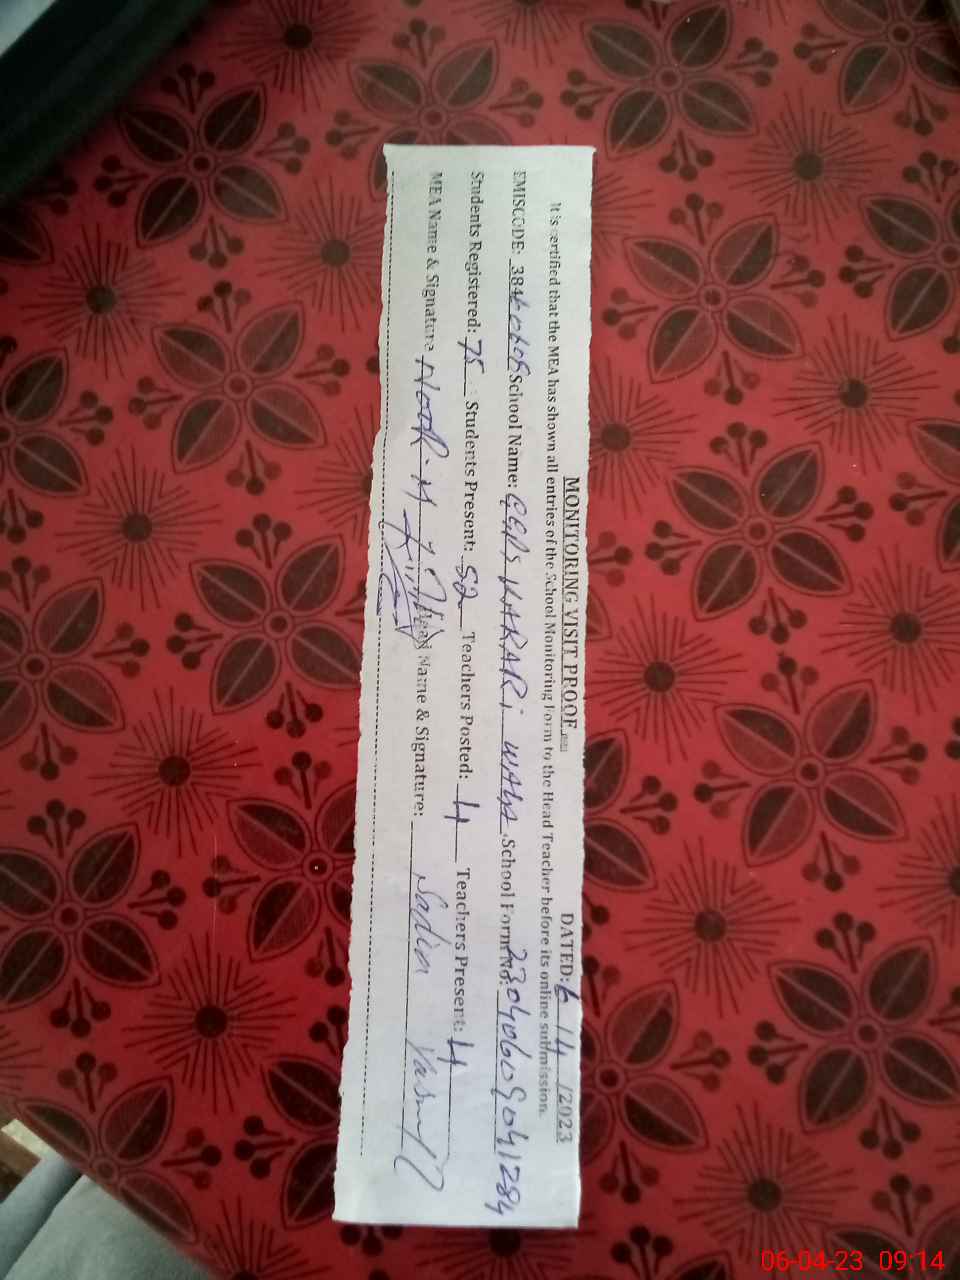 MONITORING VISIT PROOF
DATED: 6/4/2023
It is certified that the MEA has shown all entries of the School Monitoring Form to the Head Teacher before its online submission.
EMISCODE: 384 School Name: GGPS KARARi WALA School Form No: 23040609041284
Students Registered: 75 Students Present: 52 Teachers Posted: 4 Teachers Present: 4
MEA Name & Signature NOOR.M Head Name & Signature: Sadia
06-04-23 09:14